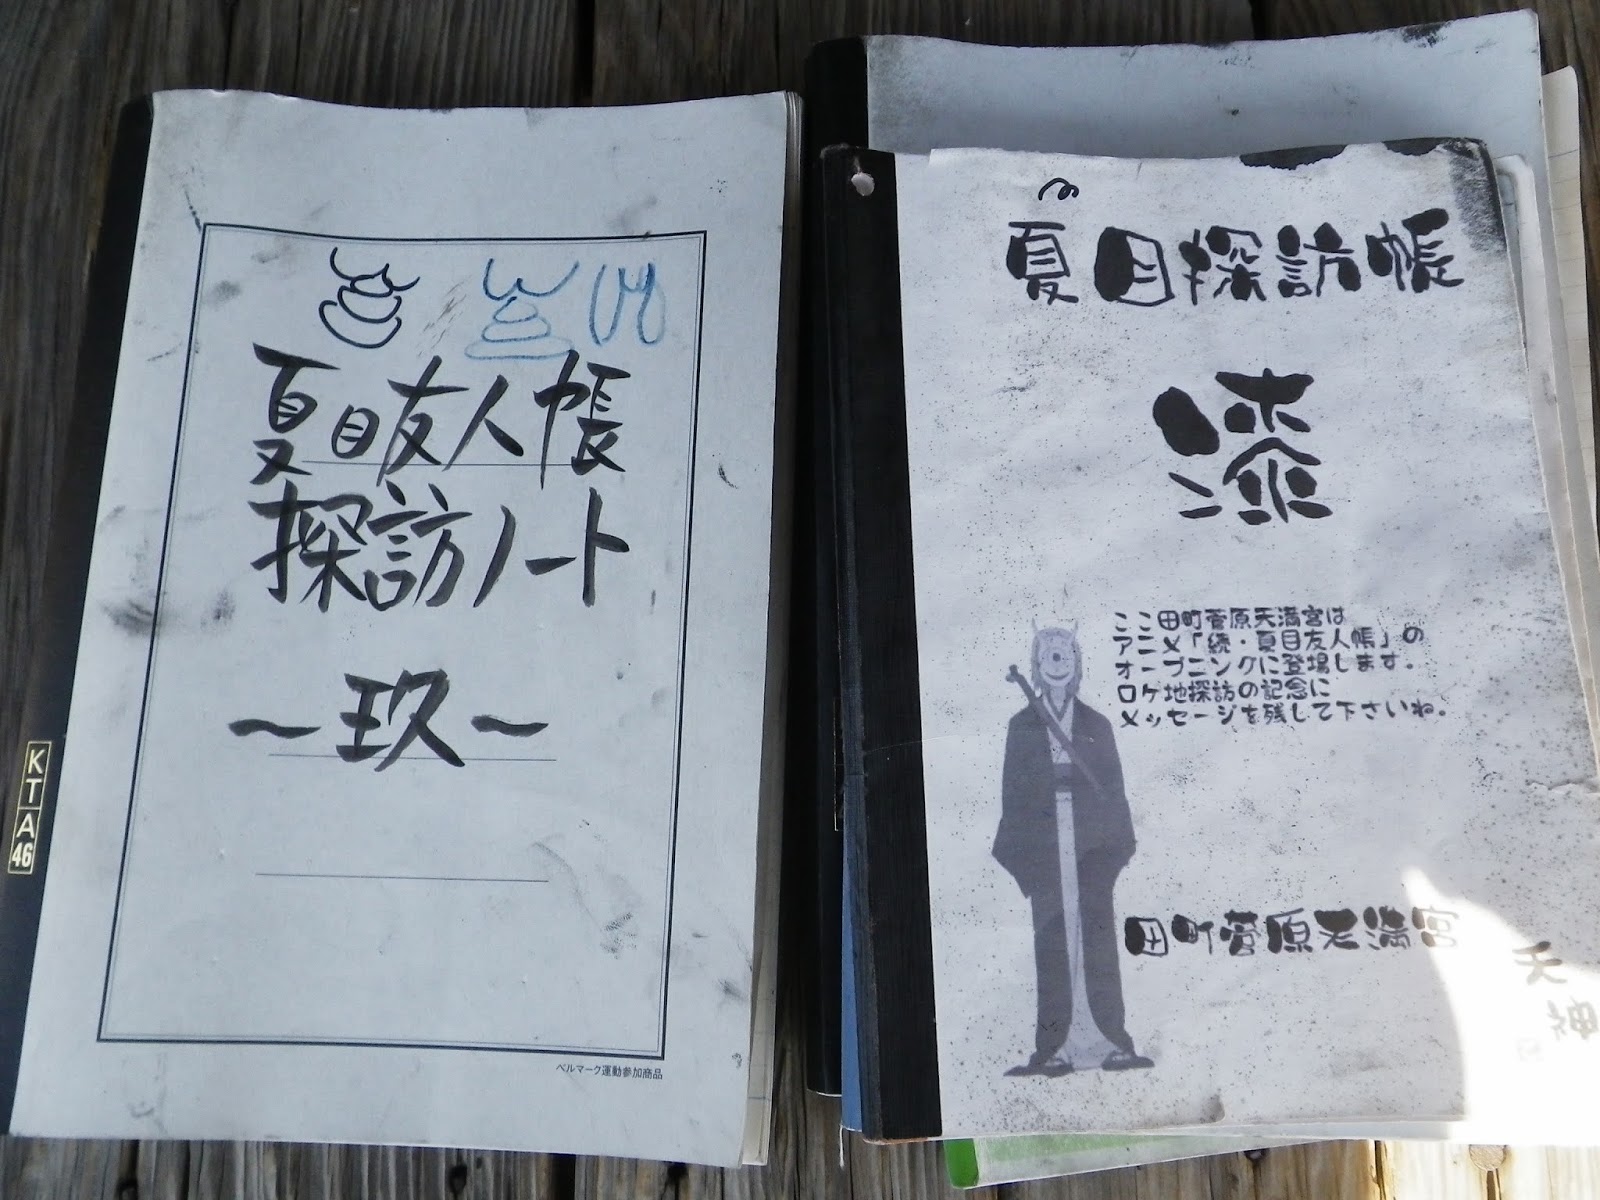 夏目友人帳
探訪ノート
～玖～
ベルマーク運動参加商品
KTA
46
夏目探訪帳
漆
ここ田町菅原天満宮は
アニメ「続・夏目友人帳」の
オープニングに登場します。
ロケ地探訪の記念に
メッセージを残して下さいね。
田町菅原天満宮
天神